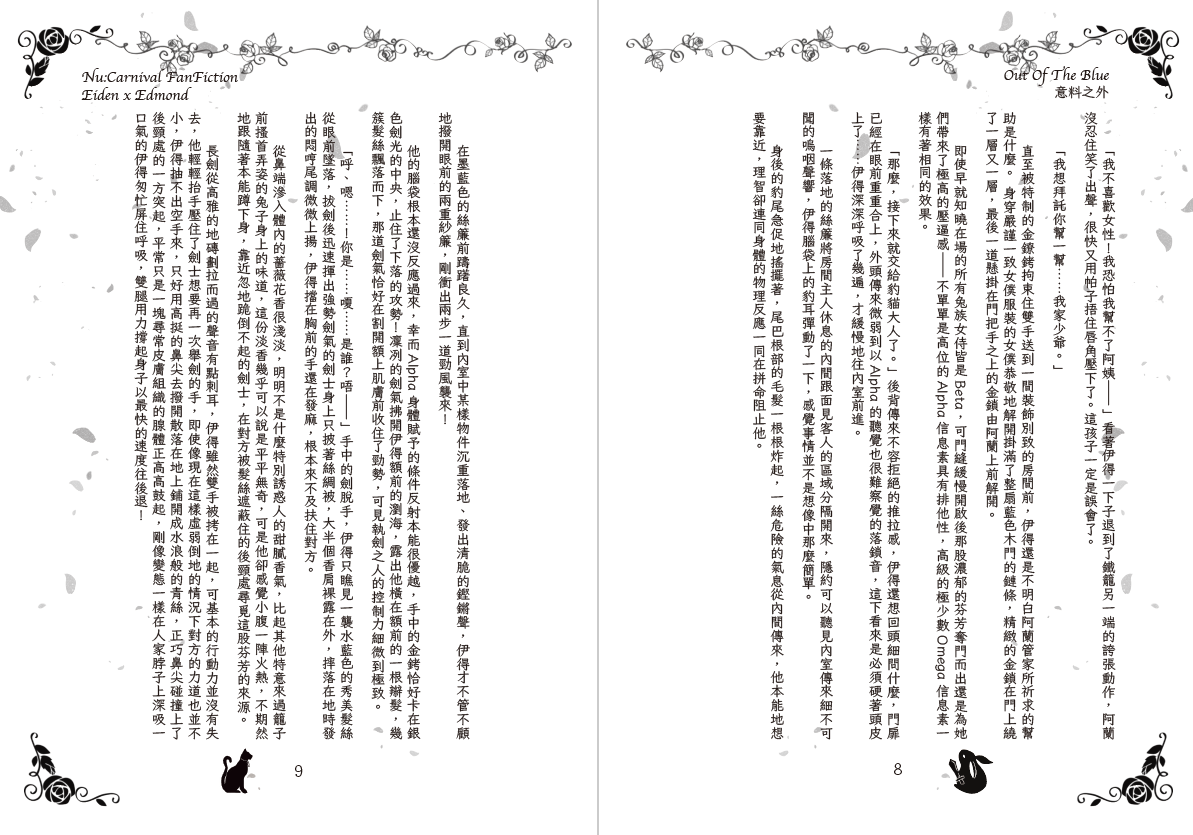 Out Of The Blue
意料之外
「我不喜歡女性！我恐怕我幫不了阿姨——」看著伊得一下子退到了鐵籠另一端的誇張動作，阿蘭
沒忍住笑了出聲，很快又用帕子捂住唇角壓下了。這孩子一定是誤會了。
「我想拜託你幫一幫……我家少爺。」
直至被特制的金鐐銬拘束住雙手送到一間裝飾別致的房間前，伊得還是不明白阿蘭管家所祈求的幫
助是什麼。身穿嚴謹一致女僕服裝的女僕恭敬地解開掛滿了整扇藍色木門的鏈條，精緻的金鎖在門上繞
了一層又一層，最後一道懸掛在門把手之上的金鎖由阿蘭上前解開。
即使早就知曉在場的所有兔族女侍皆是 Beta，可門縫緩慢開啟後那股濃郁的芬芳奪門而出還是為她
們帶來了極高的壓逼感——不單單是高位的 Alpha 信息素具有排他性，高級的極少數 Omega 信息素一
樣有著相同的效果。
「那麼，接下來就交給豹貓大人了。」後背傳來不容拒絕的推拉感，伊得還想回頭細問什麼，門扉
已經在眼前重重合上，外頭傳來微弱到以 Alpha 的聽覺也很難察覺的落鎖音，這下看來是必須硬著頭皮
上了……伊得深深呼吸了幾遍，才緩慢地往內室前進。
一條落地的絲簾將房間主人休息的內間跟面見客人的區域分隔開來，隱約可以聽見內室傳來細不可
聞的嗚咽聲響，伊得腦袋上的豹耳彈動了一下，感覺事情並不是想像中那麼簡單。
身後的豹尾急促地搖擺著，尾巴根部的毛髮一根根炸起，一絲危險的氣息從內間傳來，他本能地想
要靠近，理智卻連同身體的物理反應一同在拼命阻止他。
8
Nu:Carnival FanFiction
Eiden x Edmond
在墨藍色的絲簾前躊躇良久，直到內室中某樣物件沉重落地、發出清脆的鏗鏘聲，伊得才不管不顧
地撥開眼前的兩重紗簾，剛衝出兩步一道勁風襲來！
他的腦袋根本還沒反應過來，幸而 Alpha 身體賦予的條件反射本能很優越，手中的金銬恰好卡在銀
色劍光的中央，止住了下落的攻勢！凜冽的劍氣拂開伊得額前的瀏海，露出他橫在額前的一根辮髮，幾
簇髮絲飄落而下，那道劍氣恰好在割開額上肌膚前收住了勁勢，可見執劍之人的控制力細微到極致。
「呼、嗯……！你是……嗄……是誰？唔——」手中的劍脫手，伊得只瞧見一襲水藍色的秀美髮絲
從眼前墜落，拔劍後迅速揮出強勢劍氣的劍士身上只披著絲綢被，大半個香肩裸露在外，摔落在地時發
出的悶哼尾調微微上揚，伊得擋在胸前的手還在發麻，根本來不及扶住對方。
從鼻端滲入體內的薔薇花香很淺淡，明明不是什麼特別誘惑人的甜膩香氣，比起其他特意來過籠子
前搔首弄姿的兔子身上的味道，這份淡香幾乎可以說是平平無奇，可是他卻感覺小腹一陣火熱，不期然
地跟隨著本能蹲下身，靠近忽地跪倒不起的劍士，在對方被髮絲遮蔽住的後頸處尋覓這股芬芳的來源。
長劍從高雅的地磚劃拉而過的聲音有點刺耳，伊得雖然雙手被拷在一起，可基本的行動力並沒有失
去，他輕輕抬手壓住了劍士想要再一次舉劍的手，即使像現在這樣虛弱倒地的情況下對方的力道也並不
小，伊得抽不出空手來，只好用高挺的鼻尖去撥開散落在地上鋪開成水浪般的青絲，正巧鼻尖碰撞上了
後頸處的一方突起，平常只是一塊尋常皮膚組織的腺體正高高鼓起，剛像變態一樣在人家脖子上深吸一
口氣的伊得匆忙屏住呼吸，雙腿用力撐起身子以最快的速度往後退！
9